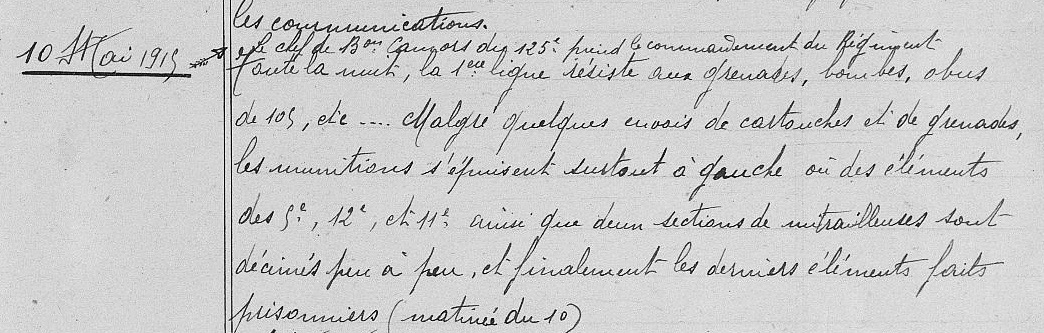 les communications.
Le chef de Bon Cauzors du 125e prend le commandement du Régiment
10 Mai 1915
Toute la nuit, la 1ère ligne résiste aux grenades, bombes, obus
de 105, etc .... Malgré quelques envois de cartouches et de grenades,
les munitions s'épuisent surtout à gauche où des éléments
des 9e, 12e, et 11e ainsi que deux sections de mitrailleuses sont
décimés peu à peu, et finalement les derniers éléments faits
prisonniers (matinée du 10)